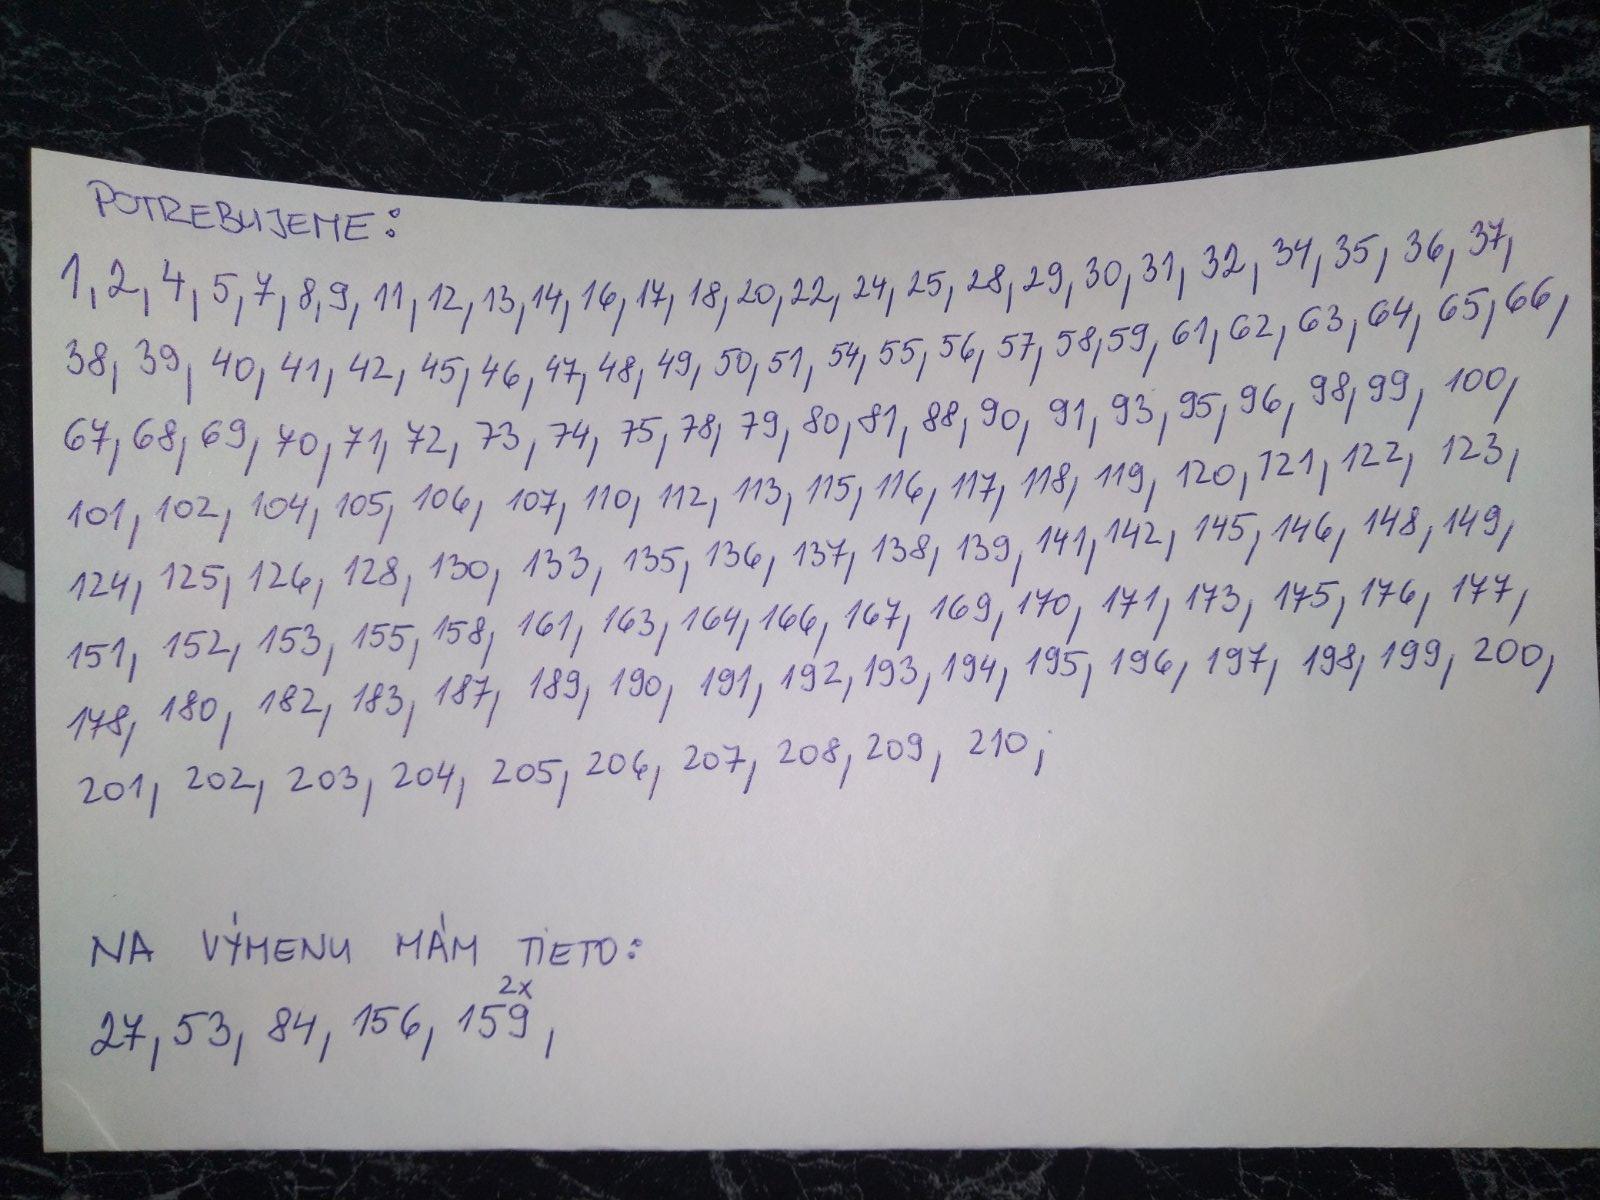 POTREBUJEME:
1, 2, 4, 5, 7, 8, 9, 11, 12, 13, 14, 16, 17, 18, 20, 22, 24, 25, 28, 29, 30, 31, 32, 34, 35, 36, 37,
38, 39, 40, 41, 42, 45, 46, 47, 48, 49, 50, 51, 54, 55, 56, 57, 58, 59, 61, 62, 63, 64, 65, 66,
67, 68, 69, 70, 71, 72, 73, 74, 75, 78, 79, 80, 81, 88, 90, 91, 93, 95, 96, 98, 99, 100,
101, 102, 104, 105, 106, 107, 110, 112, 113, 115, 116, 117, 118, 119, 120, 121, 122, 123,
124, 125, 126, 128, 130, 133, 135, 136, 137, 138, 139, 141, 142, 145, 146, 148, 149,
151, 152, 153, 155, 158, 161, 163, 164, 166, 167, 169, 170, 171, 173, 175, 176, 177,
178, 180, 182, 183, 187, 189, 190, 191, 192, 193, 194, 195, 196, 197, 198, 199, 200,
201, 202, 203, 204, 205, 206, 207, 208, 209, 210;
NA VÝMENU MÁM TIETO:
2x
27, 53, 84, 156, 159,